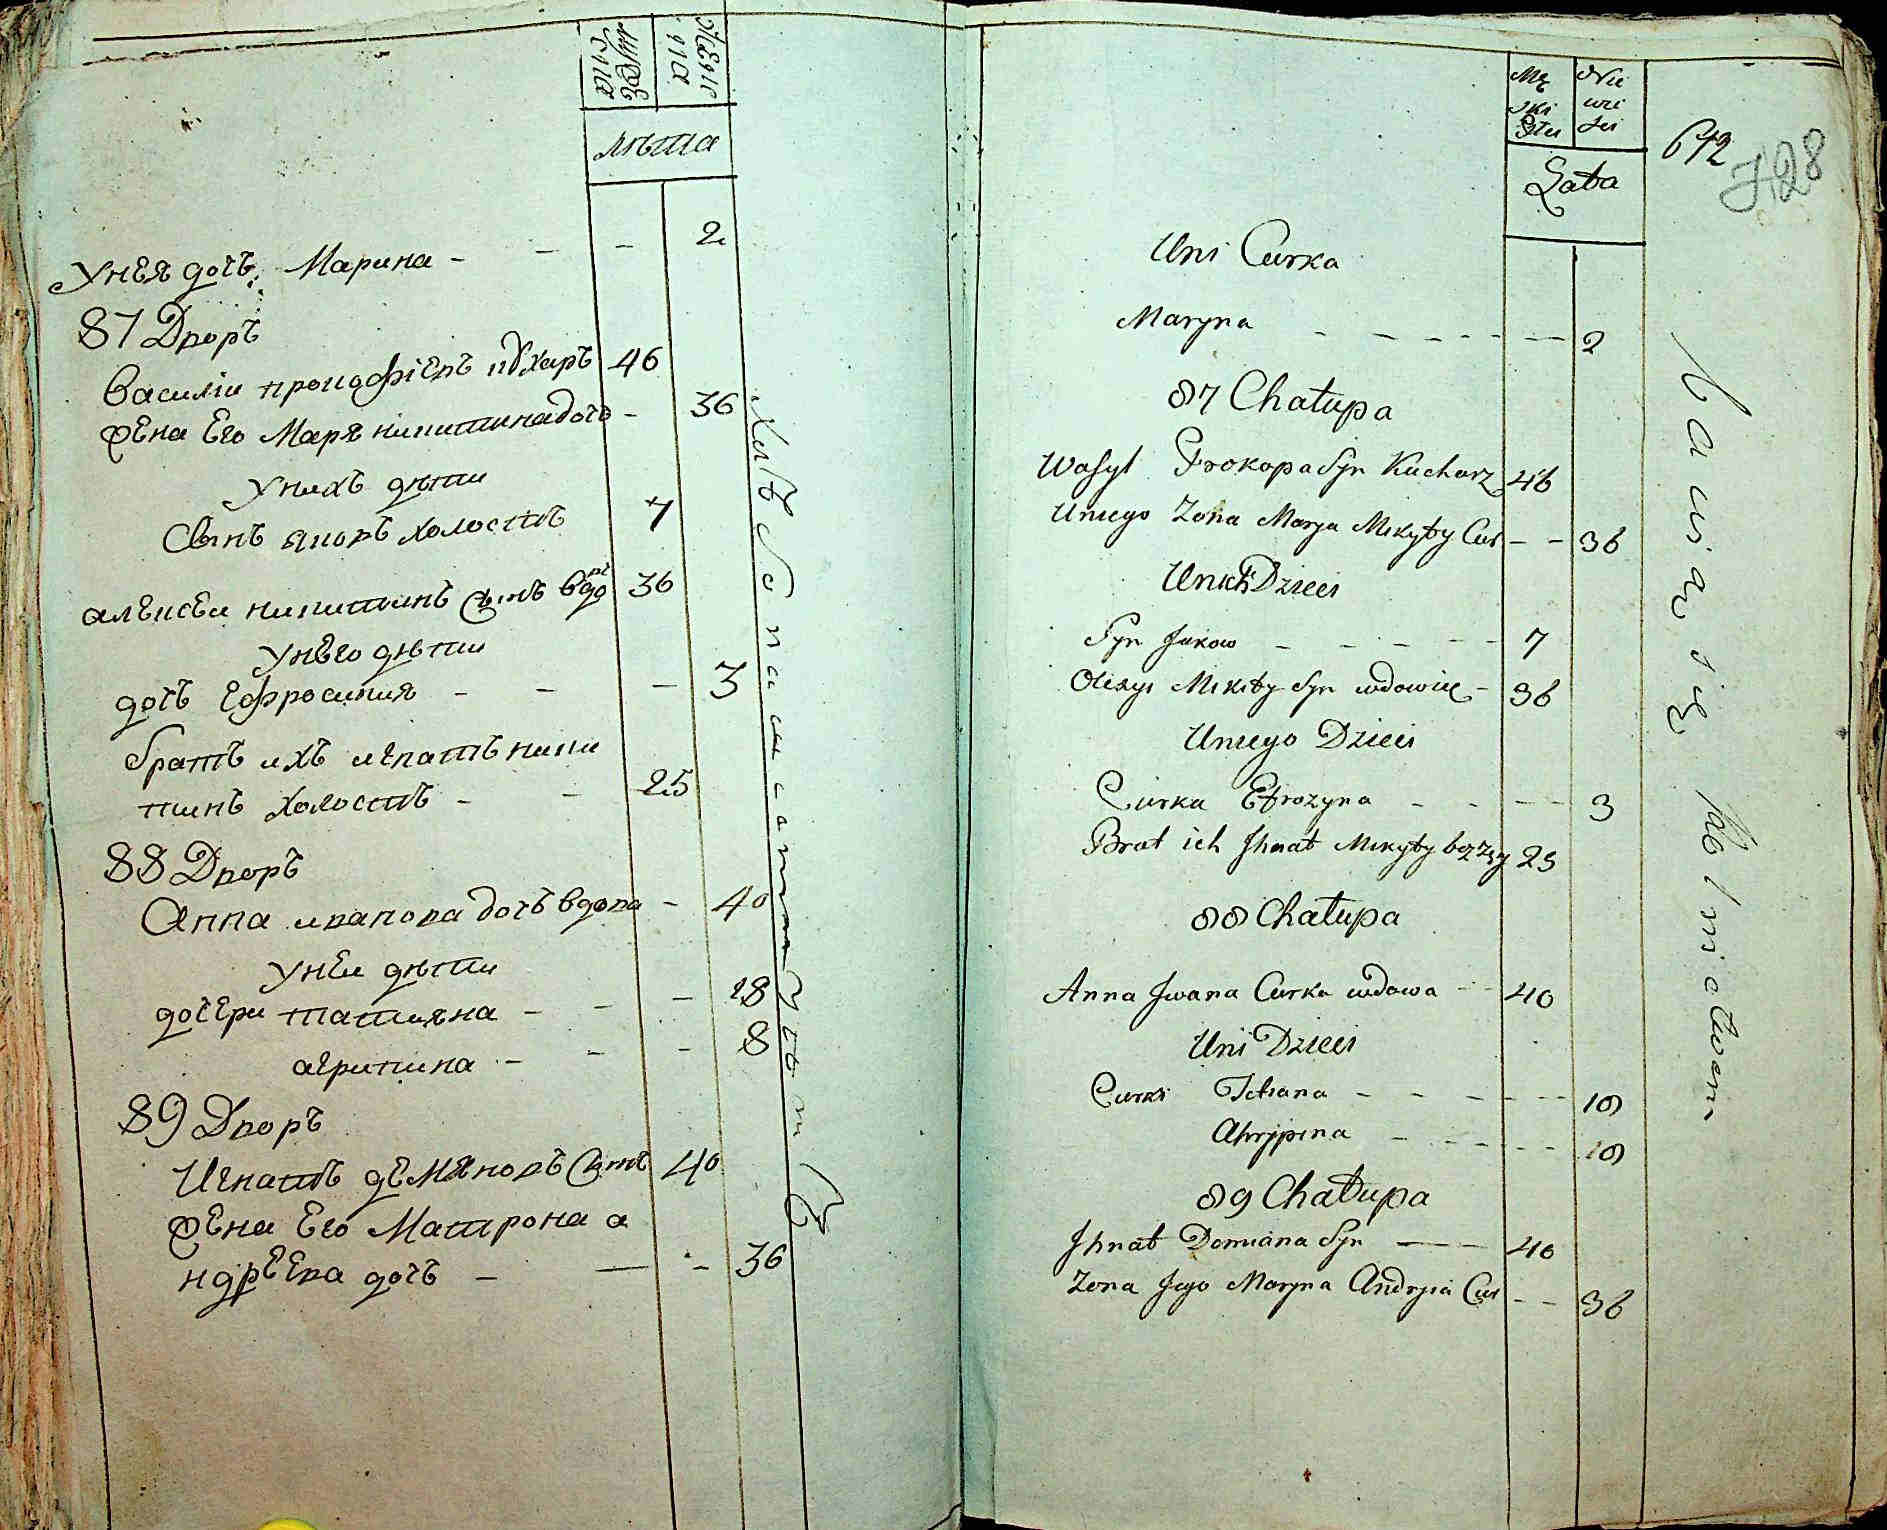 мужеска
женска
лѣта
унея дочь Марина - - - 2
87 Дворъ
Василіи прокофіевъ кухаръ 46
жена Его Маря никитина дочь - 36
унихъ дѣти
Сынъ яковъ холостъ 7
алексеи никитинъ Сынъ вдов 36
унего дѣти
дочь Ефросиния - - - 3
братъ ихъ игнатъ ники
тинъ холостъ - - 25
88 Дворъ
Анна иванова дочь вдова - 40
унеи дѣти
дочери татияна - - - 18
агрипина - - - 8
89 Дворъ
Игнатъ демяновъ Сынъ 40
жена Его Матрона а
ндрѣева дочь - - - 36
Mę
ski
Nie
wie
Lata
642
728
Uni Curka
Maryna - - - - - - 2
87 Chałupa
Wasyl Prokopa Syn Kucharz 46
Uniego Zona Marya Mikyty Cur - - 36
Unich Dzieci
Syn Jakow - - - - - 7
Olexyi Mikity Syn wdowiec - 36
Uniego Dzieci
Curka Efrozyna - - - - 3
Brat ich Jhnat Mikyty bezżę 25
88 Chałupa
Anna Jwana Curka wdowa - - 40
Uni Dzieci
Curki Tetiana - - - - - 18
Ahrypina - - - - - 18
89 Chałupa
Jhnat Demiana Syn - - 40
Zona Jego Maryna Andryia Cur - - 36